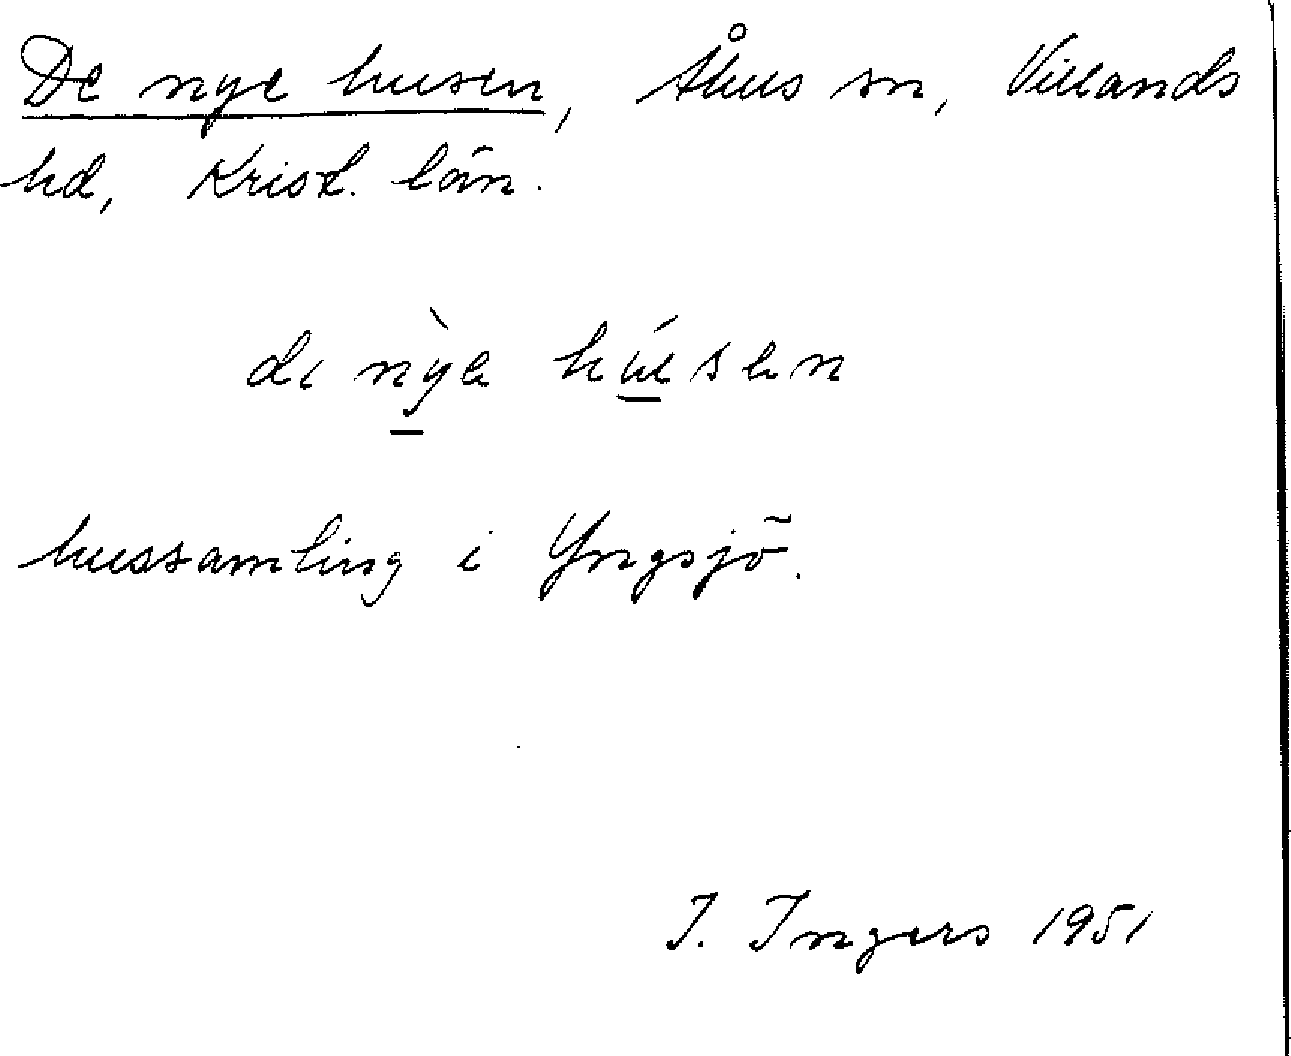 De nye husen, Åhus sn, Villands
hd, Krist. län.
di nỳa húsen
hussamling i Yngsjö.
I. Ingers 1951